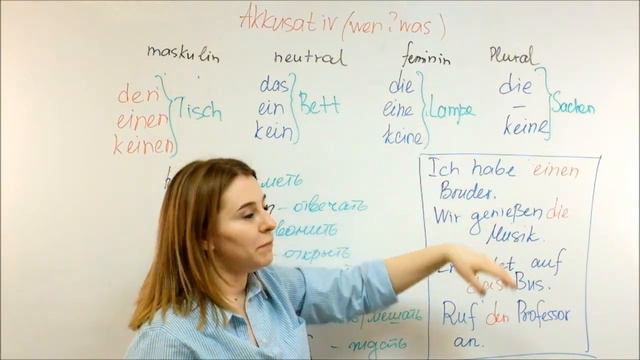 Akkusativ (wen? was)
maskulin neutral feminin Plural
den
einen
keinen
Tisch
das
ein
kein
Bett
die
eine
keine
Lampe
die
–
keine
Sachen
меть
– отвечать
вонить
– открыть
мешать
– ждать
Ich habe einen
Bruder.
Wir genießen die
Musik.
auf
Bus.
Ruf den Professor
an.